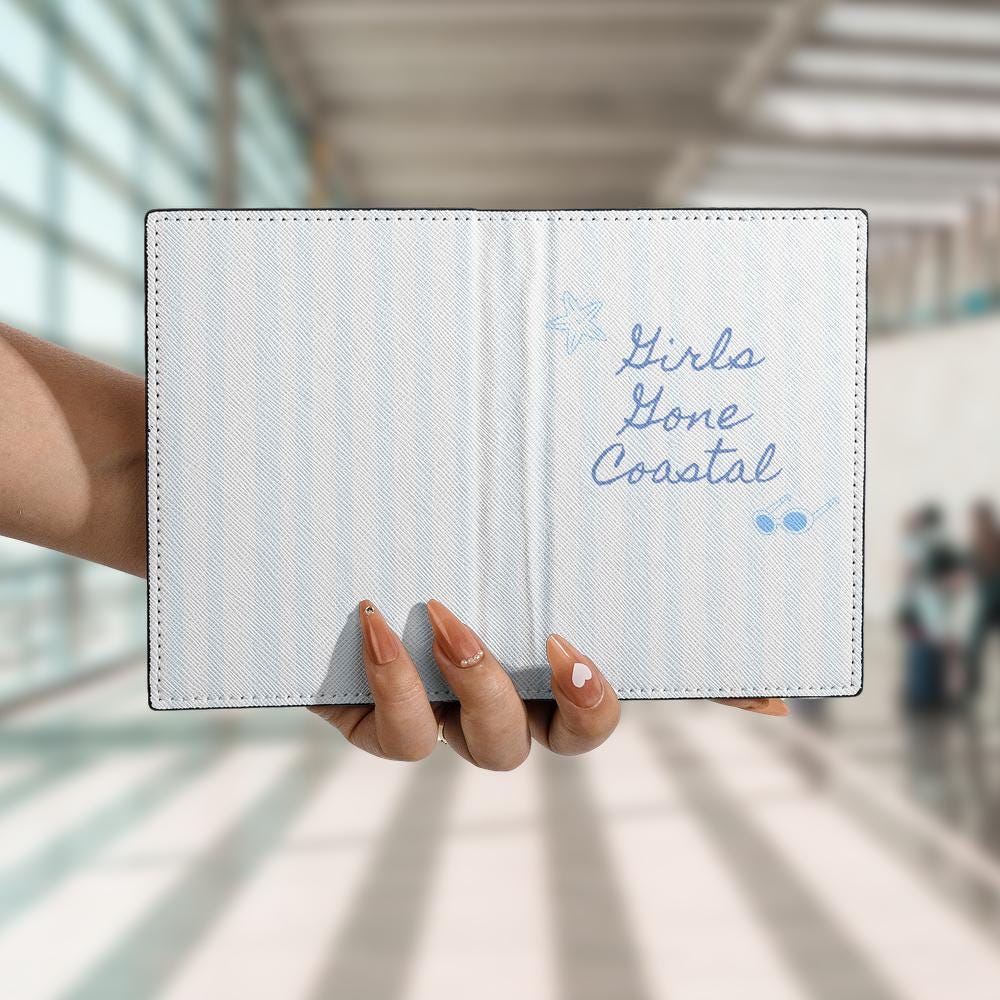 Girls
Gone
Coastal